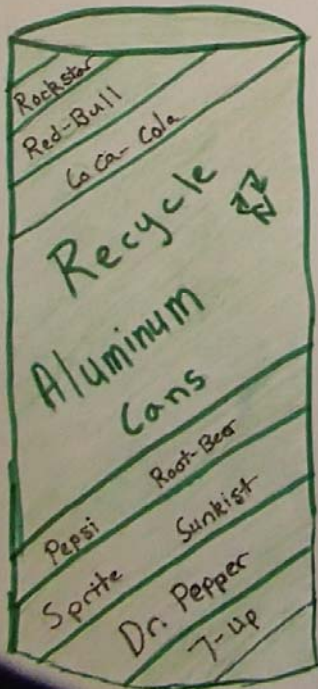 Rockstar
Red-Bull
Coca-Cola
Recycle
Aluminum
Cans
Pepsi Root-Beer
Sprite Sunkist
Dr. Pepper
7-up